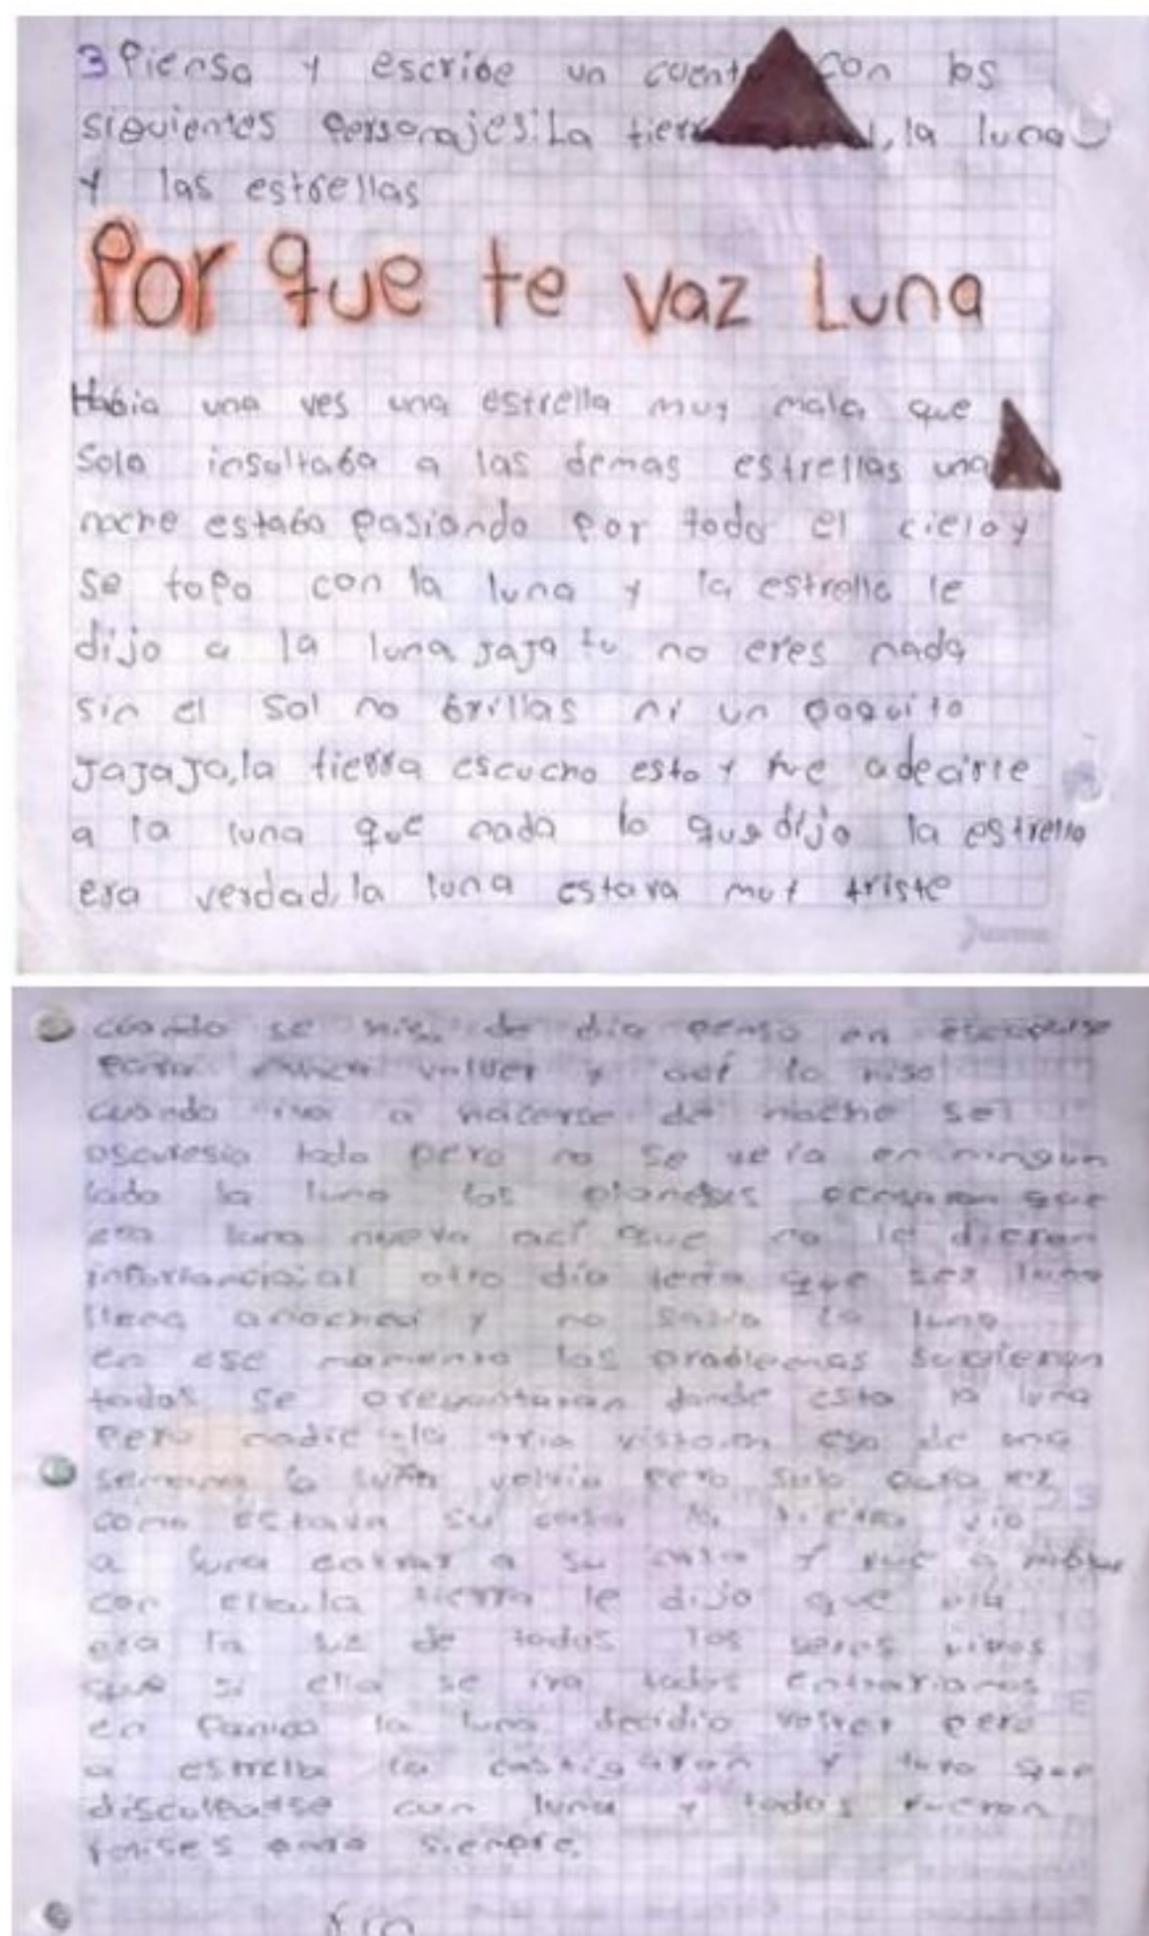 3 Piensa y escribe un cuento con los
siguientes personajes: La tierra, la luna
y las estrellas
Por que te vaz Luna
Habia una ves una estrella muy mala que
solo insultaba a las demas estrellas una
noche estaba pasiando por todo el cielo y
se topo con la luna y la estrella le
dijo a la luna jaja tu no eres nada
sin el sol no brillas ni un poquito
Jajaja, la tierra escucho esto y fue a decirle
a la luna que nada lo que dijo la estrella
era verdad, la luna estava muy triste
cuando se de dia penso en
para nunca volver y asi lo hiso
cuando iva a hacerse de noche se
oscuresia todo pero no se veia en ningun
lado la luna los pensaron que
era luna nueva aci que no le dieron
al otro dia tenia que ser luna
llena y no salia la luna
en ese momento los problemas surgieron
todos se preguntaron donde esta la luna
pero nadie la visto, en eso de una
semana la luna volvio pero solo para ver
como estava su casa la tierra vio
a luna entrar a su casa y fue a hablar
con ella, la tierra le dijo que ella
era la luz de todos los seres vivos
que si ella se iva todos entrariamos
en panico la luna decidio volver pero
a estrella la castigaron y tuvo que
disculparse con luna y todos fueron
felises para siempre.
Fin